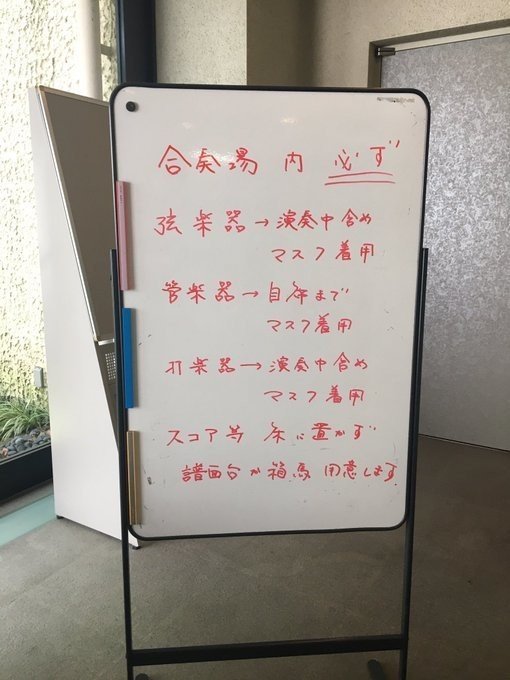 合奏場 内 必ず
弦楽器→演奏中含め
マスク着用
管楽器→自席まで
マスク着用
打楽器→演奏中含め
マスク着用
スコア等 床に置かず
譜面台か箱馬 用意します